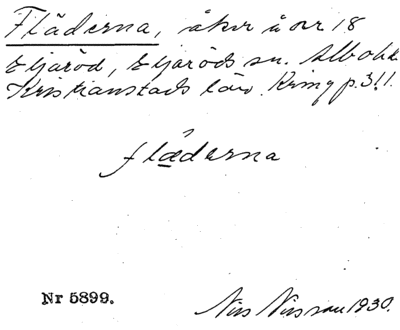 Fläderna, åker å nr 18
Eljaröd, Eljaröds sn. Albo hd
Kristianstads län. Kring p. 311.
flæderna
Nr 5899.
Nils Nilsson 1930.